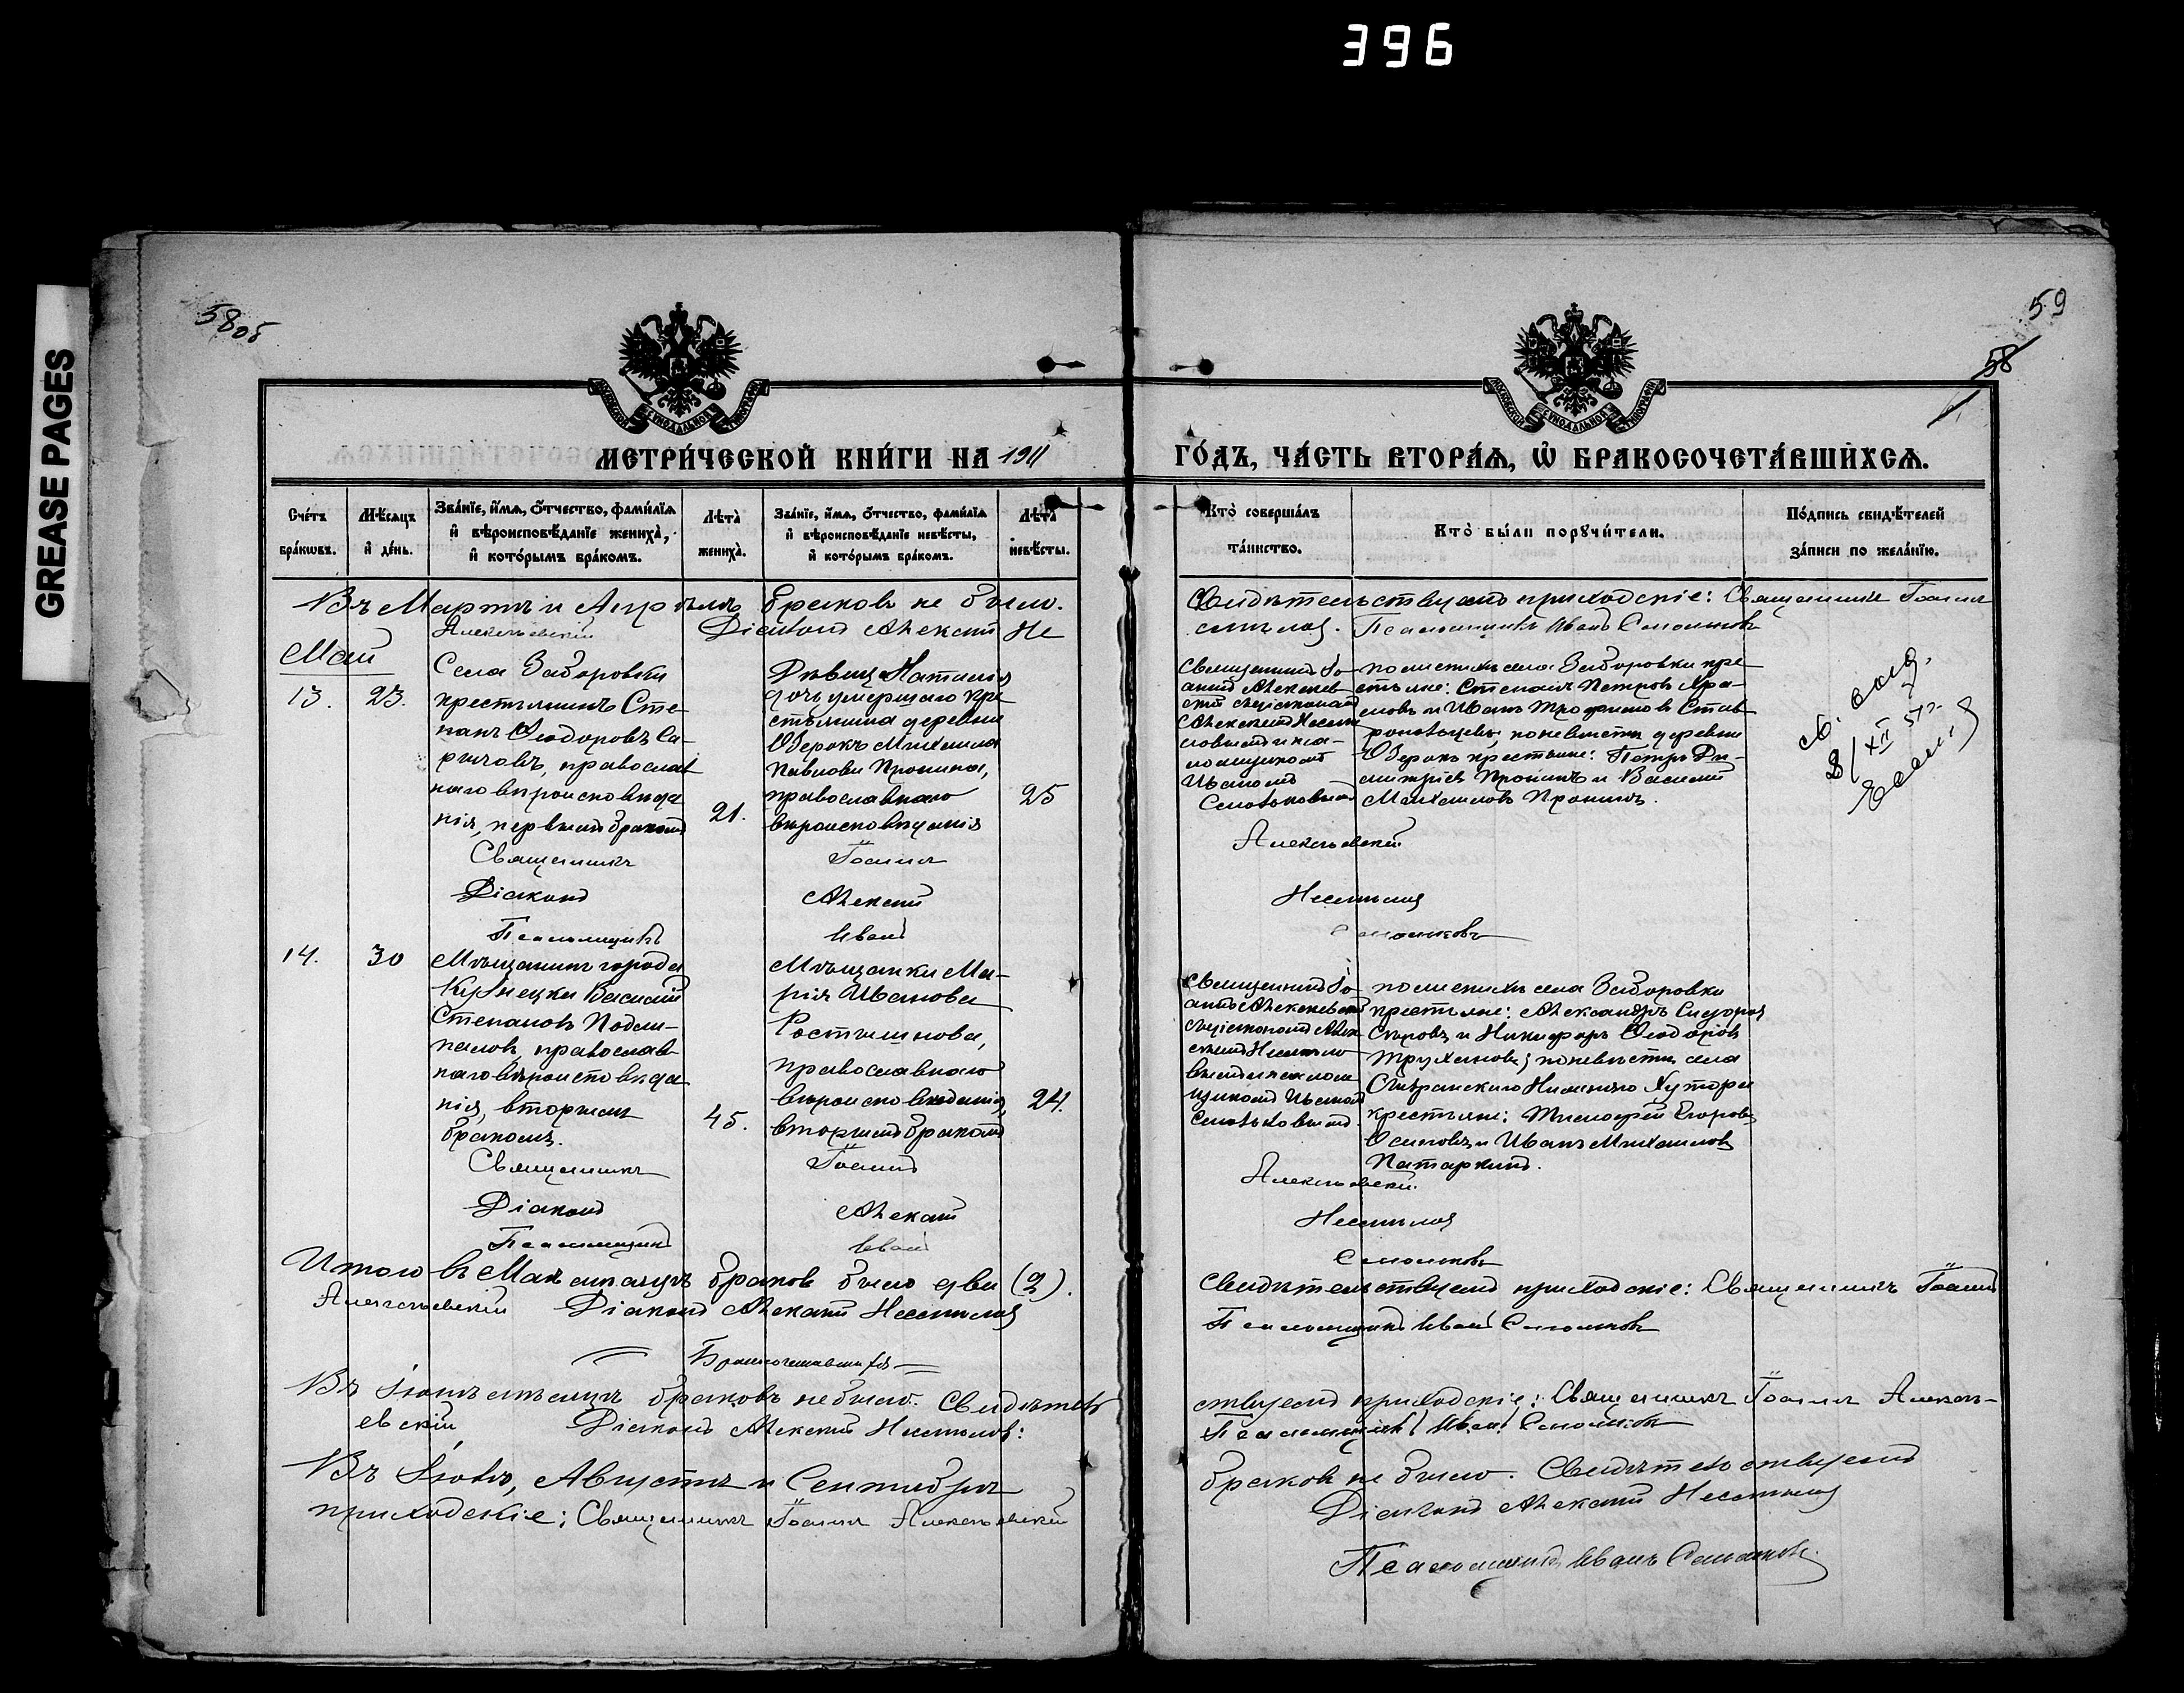 396
GREASE PAGES
58об
59
58
МЕТРИ́ЧЕСКОЙ КНИ́ГИ НА 1911
ГО́ДЪ, ЧА́СТЬ ВТОРА́Ѧ, Ѡ҆ БРАКОСОЧЕТА́ВШИХСѦ.
Сче́тъ бра́кѡвъ.
Мѣ́сѧцъ и҆ де́нь.
Зва́нїе, и҆́мѧ, ѻ҆́тчество, фами́лїѧ
и҆ вѣроисповѣ́данїе жениха̀,
и҆ кото́рымъ бра́комъ.
Лѣ́та̀ жениха̀.
Зва́нїе, и҆́мѧ, ѻ҆́тчество, фами́лїѧ
и҆ вѣроисповѣ́данїе невѣ́сты,
и҆ кото́рымъ бра́комъ.
Лѣ́та̀ невѣ́сты.
Кто̀ соверша́лъ та́инство.
Кто̀ бы́ли порꙋчи́тели.
По́дпись свидѣ́телей
за́писи по жела́нїю.
Въ Мартѣ и Апрѣлѣ браковъ не было.
Свидѣтельствуютъ приходскіе: Священникъ Іоаннъ
Алексѣевскій Діаконъ Алексѣй Не
смѣловъ. Псаломщикъ Иванъ Смольковъ
Май
13.
23.
Села Заборовки
крестьянинъ Сте-
панъ Ѳеодоровъ Са-
рычовъ, православ
наго вѣроисповѣда
нія, первымъ бракомъ
21.
Дѣвица Наталія
дочь умершаго кре
стьянина деревни
Озерокъ Михаила
Павлова Пронина,
православнаго
вѣроисповѣданія
25
Священникъ Іо-
аннъ Алексѣев-
скій съ діакономъ
Алексѣемъ Несмѣ
ловымъ и пса-
ломщикомъ
Иваномъ
Смольковымъ
по женихѣ села Заборовки кре-
стьяне: Степанъ Петровъ Хра-
мовъ и Иванъ Трофимовъ Став
по невѣстѣ деревни
Озерокъ крестьяне: Петръ Ди-
митріевъ Пронинъ и Василій
Михаиловъ Пронинъ.
8/XII 51 г.
Священникъ Іоаннъ Алексѣевскій
Діаконъ Алексѣй Несмѣловъ
Псаломщикъ Иванъ Смольковъ
14.
30
Мѣщанинъ города
Кузнецка Василій
Степановъ
православ
наго вѣроисповѣда
нія, вторымъ
бракомъ.
45.
Мѣщанки Ма-
рія Иванова
православнаго
вѣроисповѣданія,
вторымъ бракомъ
24.
Священникъ Іо-
аннъ Алексѣевскій
съ діакономъ Алек
сѣемъ Несмѣло
вымъ и псалом
щикомъ Иваномъ
Смольковымъ.
по женихѣ села Заборовки
крестьяне: Александръ Сидоровъ
и Никифоръ Ѳеодоровъ
Трухановъ; по невѣстѣ села
Сызранскаго Хутора
крестьяне: Тимофей Егоровъ
Осиповъ и Иванъ Михаиловъ
Патаркинъ.
Священникъ Іоаннъ Алексѣевскій
Діаконъ Алексѣй Несмѣловъ
Псаломщикъ Иванъ Смольковъ
Итого въ Маѣ мѣсяцѣ браковъ было два (2).
Свидѣтельствуемъ приходскіе: Священникъ Іоаннъ
Алексѣевскій Діаконъ Алексѣй Несмѣловъ
Псаломщикъ Иванъ Смольковъ
Бракосочетавшихся
Въ Іюнѣ мѣсяцѣ браковъ не было. Свидѣтель
ствуемъ приходскіе: Священникъ Іоаннъ Алексѣ-
евскій Діаконъ Алексѣй Несмѣловъ:
Псаломщикъ Иванъ Смольковъ
Въ Іюлѣ, Августѣ и Сентябрѣ
браковъ не было. Свидѣтельствуемъ
приходскіе: Священникъ Іоаннъ Алексѣевскій
Діаконъ Алексѣй Несмѣловъ
Псаломщикъ Иванъ Смольковъ.